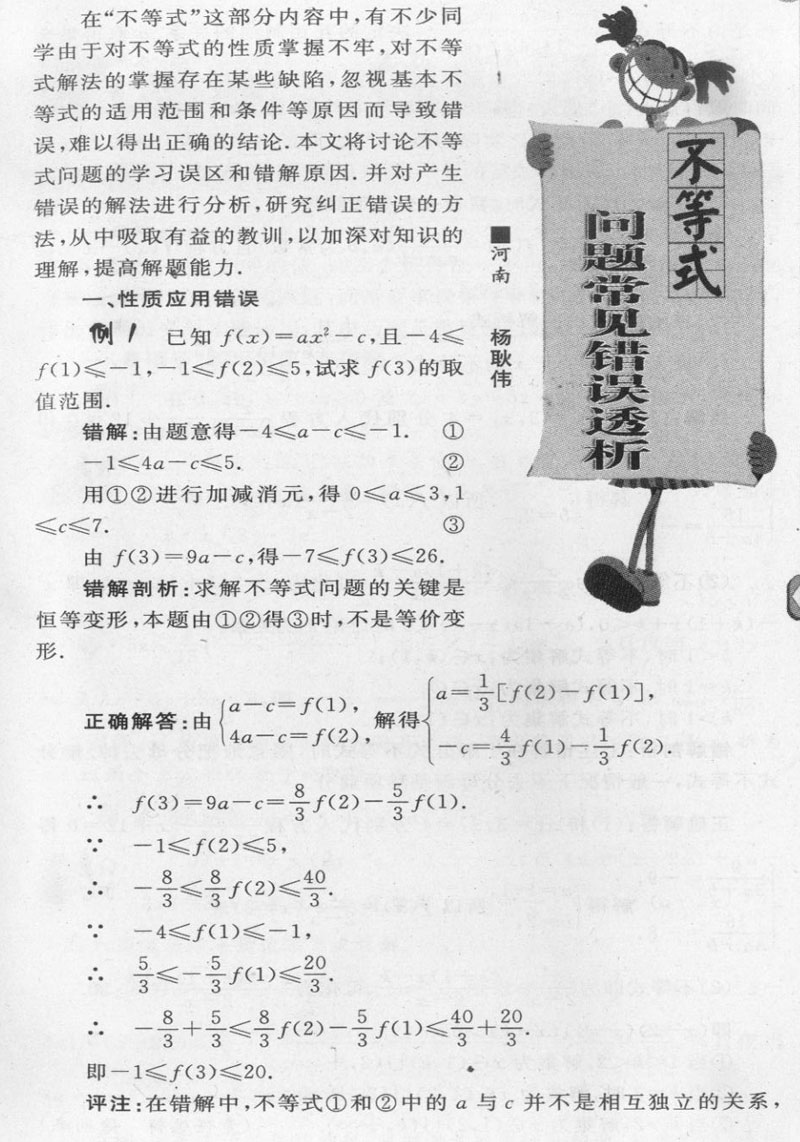 在“不等式”这部分内容中,有不少同
学由于对不等式的性质掌握不牢,对不等
式解法的掌握存在某些缺陷,忽视基本不
等式的适用范围和条件等原因而导致错
误,难以得出正确的结论.本文将讨论不等
式问题的学习误区和错解原因.并对产生
错误的解法进行分析,研究纠正错误的方
法,从中吸取有益的教训,以加深对知识的
理解,提高解题能力.
不等式
问题常见错误透析
■河南 杨耿伟
一、性质应用错误
例1 已知 f(x)=ax²-c,且-4≤
f(1)≤-1,-1≤f(2)≤5,试求 f(3)的取
值范围.
错解:由题意得-4≤a-c≤-1. ①
-1≤4a-c≤5. ②
用①②进行加减消元,得 0≤a≤3,1
≤c≤7. ③
由 f(3)=9a-c,得-7≤f(3)≤26.
错解剖析:求解不等式问题的关键是
恒等变形,本题由①②得③时,不是等价变
形.
正确解答:由{a-c=f(1), 4a-c=f(2), 解得{a=1/3[f(2)-f(1)], c=4/3 f(1)-1/3 f(2).
∴ f(3)=9a-c=8/3 f(2)-5/3 f(1).
∵ -1≤f(2)≤5,
∴ -8/3≤8/3 f(2)≤40/3.
∵ -4≤f(1)≤-1,
∴ 5/3≤-5/3 f(1)≤20/3.
∴ -8/3+5/3≤8/3 f(2)-5/3 f(1)≤40/3+20/3.
即-1≤f(3)≤20.
评注:在错解中,不等式①和②中的 a 与 c 并不是相互独立的关系,